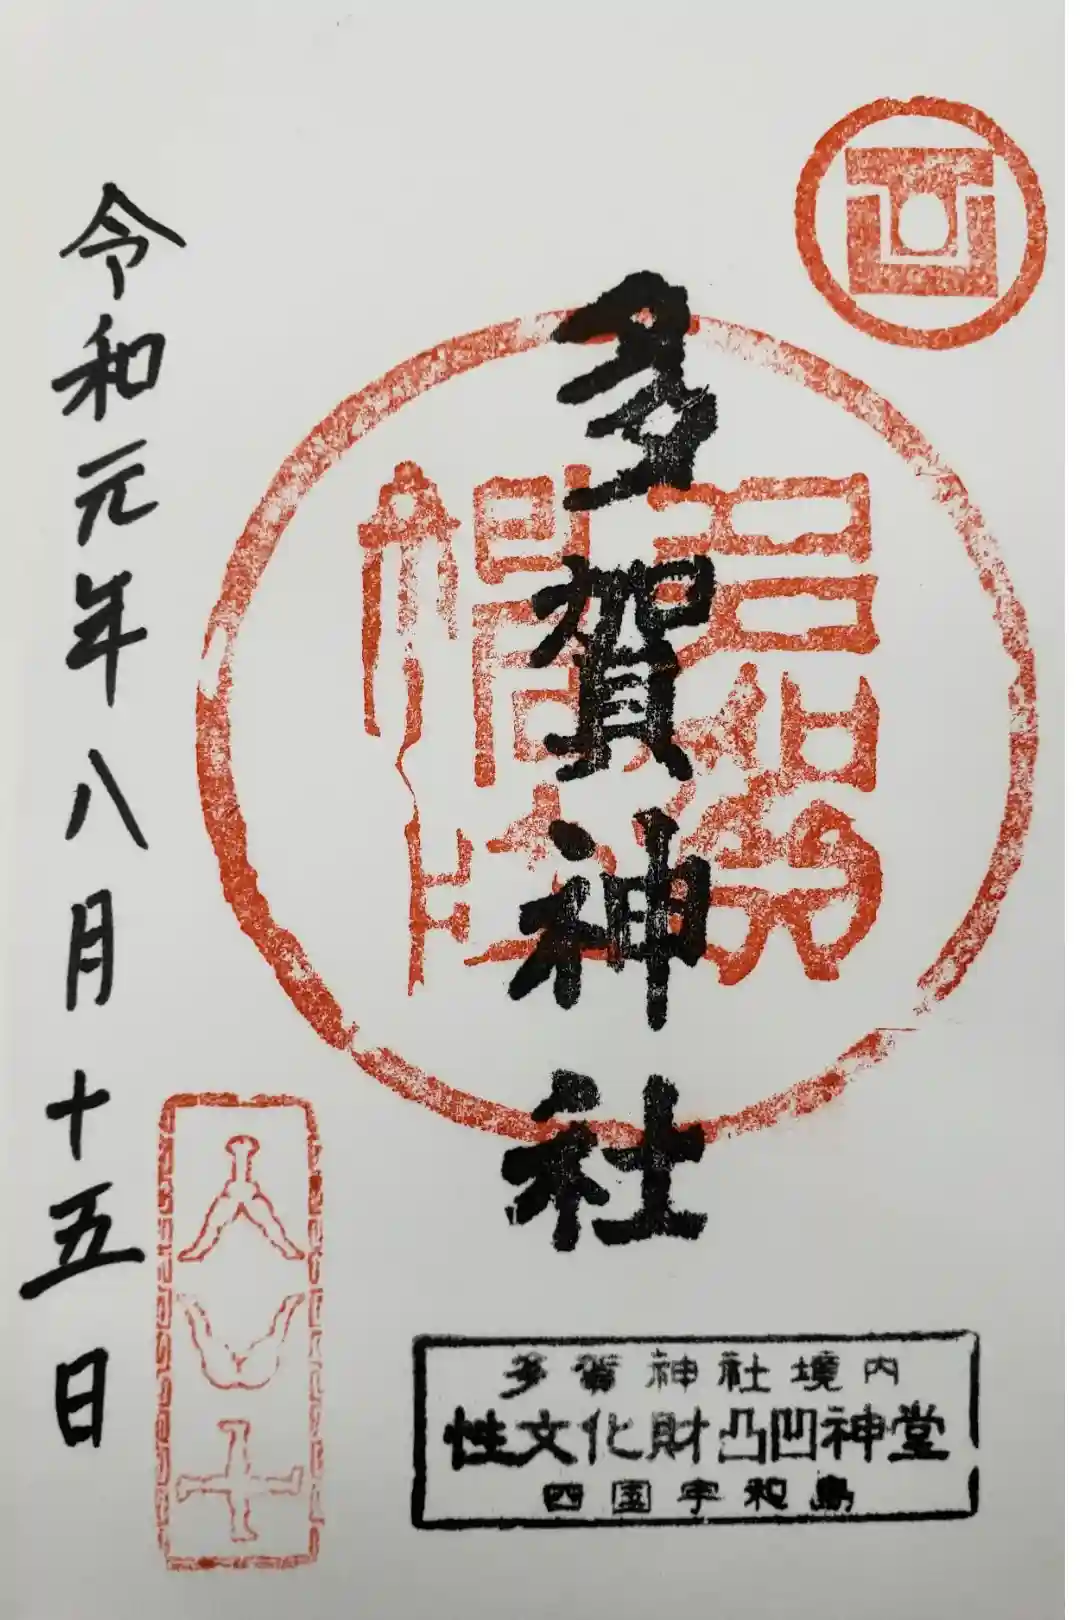 多賀神社
令和元年八月十五日
多賀神社境内
性文化財凸凹神堂
四国宇和島